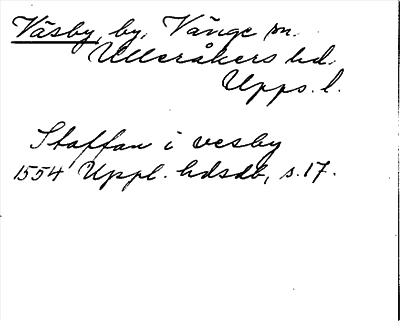 Väsby, by, Vänge sn.
Ulleråkers hd.
Upps. l.
Staffan i vesby
1554 Uppl. hdsdb, s. 17.